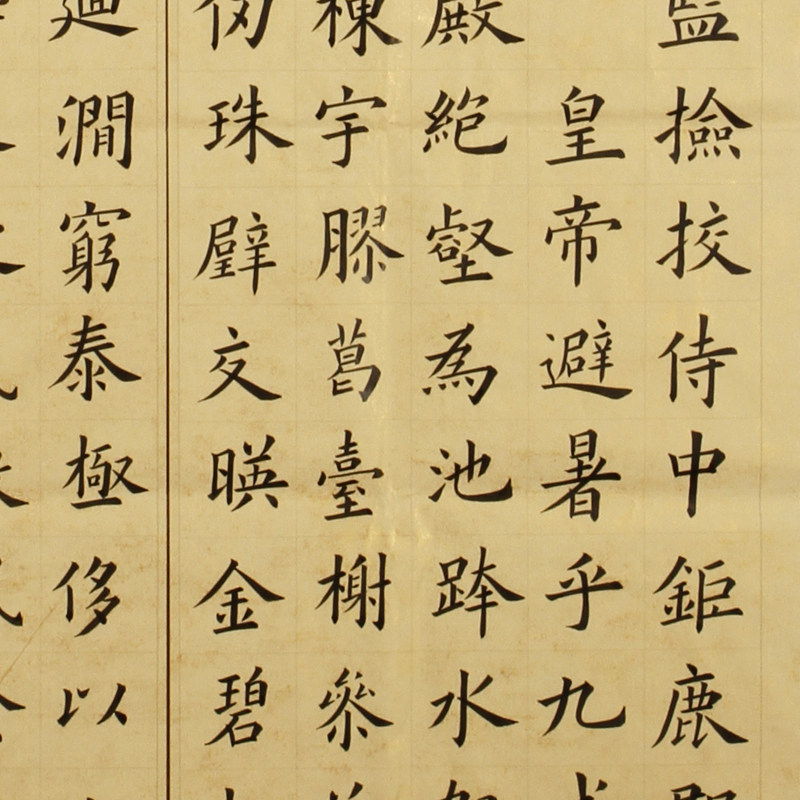 監撿挍侍中鉅鹿郡
皇帝避暑乎九成
殿絶壑為池跨水架
棟宇膠葛臺榭叅差
仞珠璧交暎金碧
迴澗窮泰極侈以